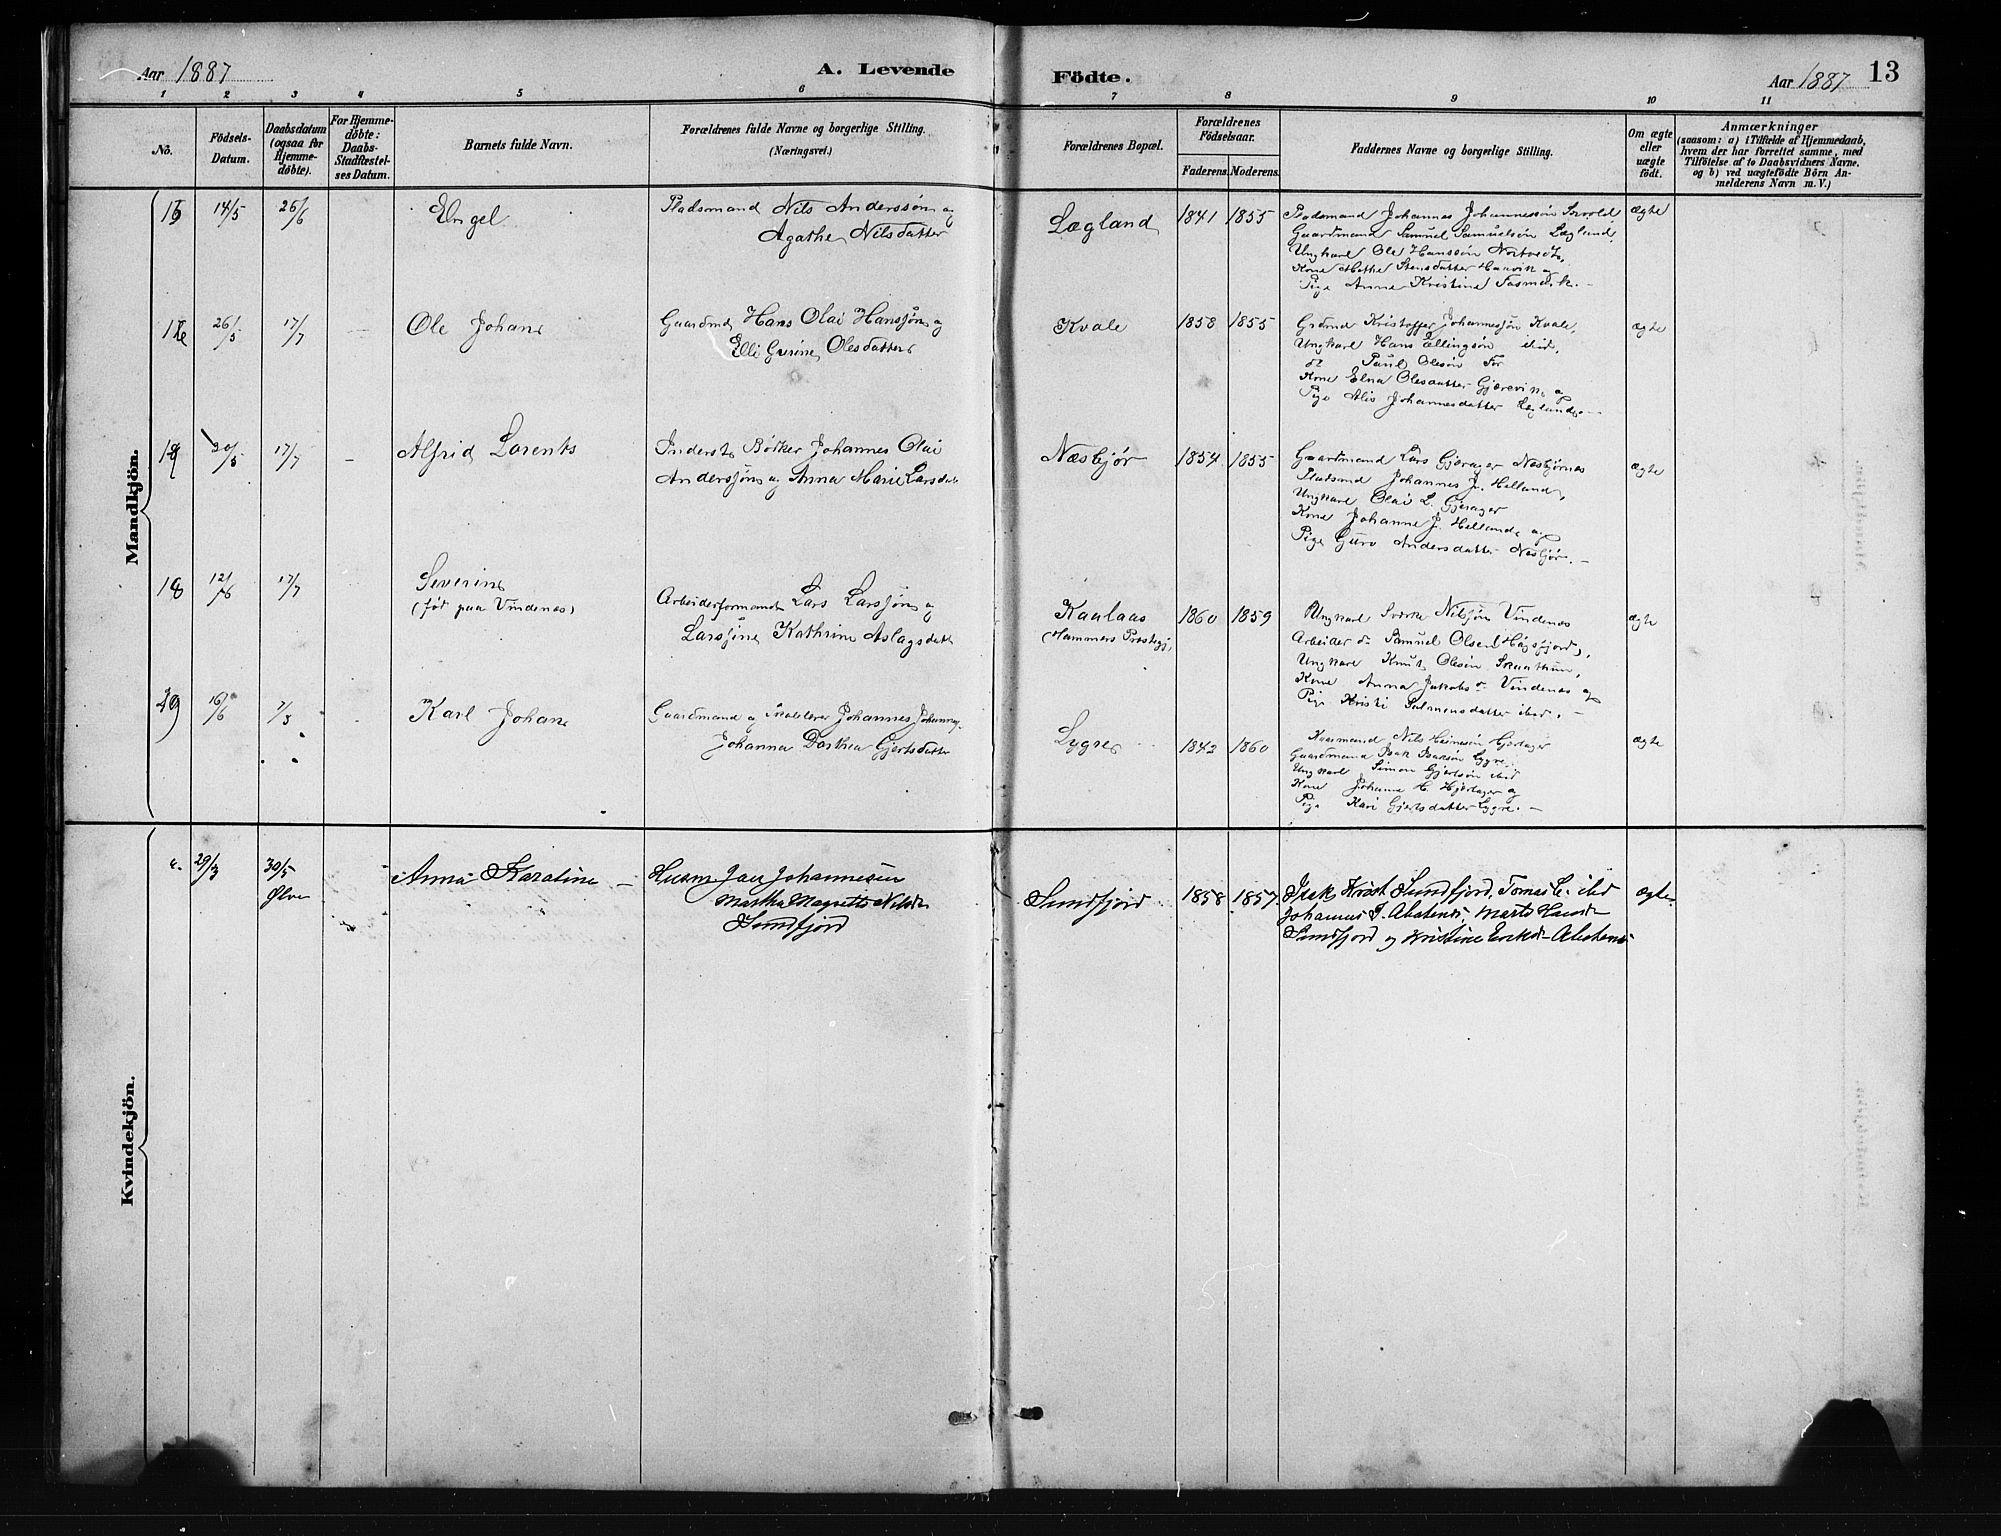 Aar 1887
A. Levende
Födte.
Aar 1887
13
1 2 3 4 5 6 7 8 9 10 11
No.
Födsels-
Datum.
Daabsdatum
(ogsaa for
Hjemme-
döbte).
For Hjemme-
döbte:
Daabs-
Stadfæstel-
ses Datum.
Barnets fulde Navn.
Forældrenes fulde Navne og borgerlige Stilling.
(Næringsvei.)
Forældrenes Bopæl.
Forældrenes
Födselsaar.
Faderens. Moderens.
Faddernes Navne og borgerlige Stilling.
Om ægte
eller
uægte
födt.
Anmærkninger
(saasom: a) i Tilfælde af Hjemmedaab,
hvem der har forrettet samme, med
Tilföielse af to Daabsvidners Navne,
og b) ved uægtefödte Börn An-
melderens Navn m. V.)
Mandkjön.
14/5
26/6
Engel
Pladsmand Nils Anderssøn og
Agathe Nilsdatter
Lægland
1841 1855
Pladsmand Johannes Johannessøn
Gaardmand Samuel Samuelsøn Lægland,
Ungkarl Ole Hanssøn Nortvedt,
Kone Stensdatter Hauvik og
Pige Anna Kristina
ægte
26/5
17/7
Ole Johan
Gaardmd Hans Olai Hanssøn og
Elli Gurine Olesdatter
Kvale
1858 1855
Kristoffer Johannessøn Kvale,
Ungkarl Hans Ellingsøn ibid,
Paul Olesøn
Kone Elna Olesdatter Gjærevik og
Pige Alis Johannesdatter Lægland. —
ægte
30/5
17/7
Alfrid Lorents
Inderst Bøtker Johannes Olai
Anderssøn og Anna Marie Larsdatr
Næsbjør
1854 1855
Gaardmand Lars Gjerager Næsbjørnes
Pladsmd Johannes J. Helland,
Ungkarl Olai L. Gjerager
Kone Johanne J. Helland og
Pige Guro Andersdatter Næsbjør. —
ægte
18
12/6
17/7
Severin
(født paa Vindenæs)
Arbeiderformand Lars Larssøn og
Kathrine Aslagsdatr
Kaalaas
(Hammers Præstegj.)
1860 1859
Ungkarl Nilssøn Vindenæs
Arbeider Samuel Olsen (Høgsfjord),
Ungkarl Knut Olesøn
Kone Anna Jakobsdr Vindenæs og
Pige Kristi Salmensdatter ibid. —
ægte
16/6
Karl Johan
Gaardmand og Johannes
Johanna Dorthea Gjertsdatter
Lygre
1842 1860
Nils
Gaardmand Isak Isaksøn Lygre,
Ungkarl Simon Gjertsøn ibid
Kone Johanna H. Hjertager og
Pige Kari Gjertsdatter Lygre. —
ægte
Kvindekjön.
29/3
30/5
Ølve
Anna Karatine —
Husm Johannesen
Martha Magrette Nilsdr
Sundfjord
Sundfjord
1858 1857
Isak Sundfjord, Tomas ibid
Johannes
Sundfjord og Kristine
ægte